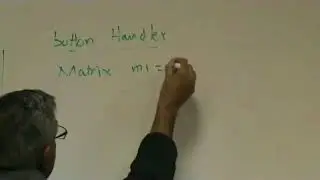 button Handler
Matrix m1 =